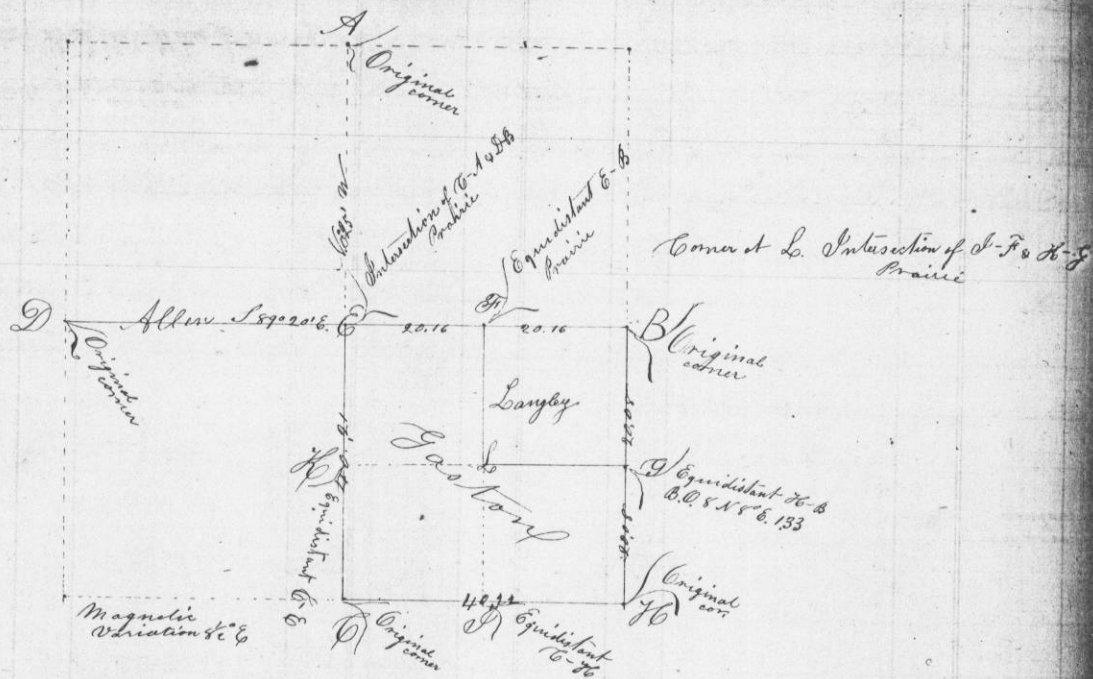 A
Original
corner
Intersection of C-A & D-B
Prairie
Equidistant E-B
Prairie
Corner at L. Intersection of I-F & K-G
Prairie
D
Allen S 89° 20' E.
E
20.16
F
20.16
B
Original
corner
Original
corner
Langley
Gaston
K
Equidistant C-E
L
G
Equidistant H-B
B.O. 8 N 8° E. 133
Magnetic
Variation
C
Original
corner
I
Equidistant
C-H
H
Original
cor.